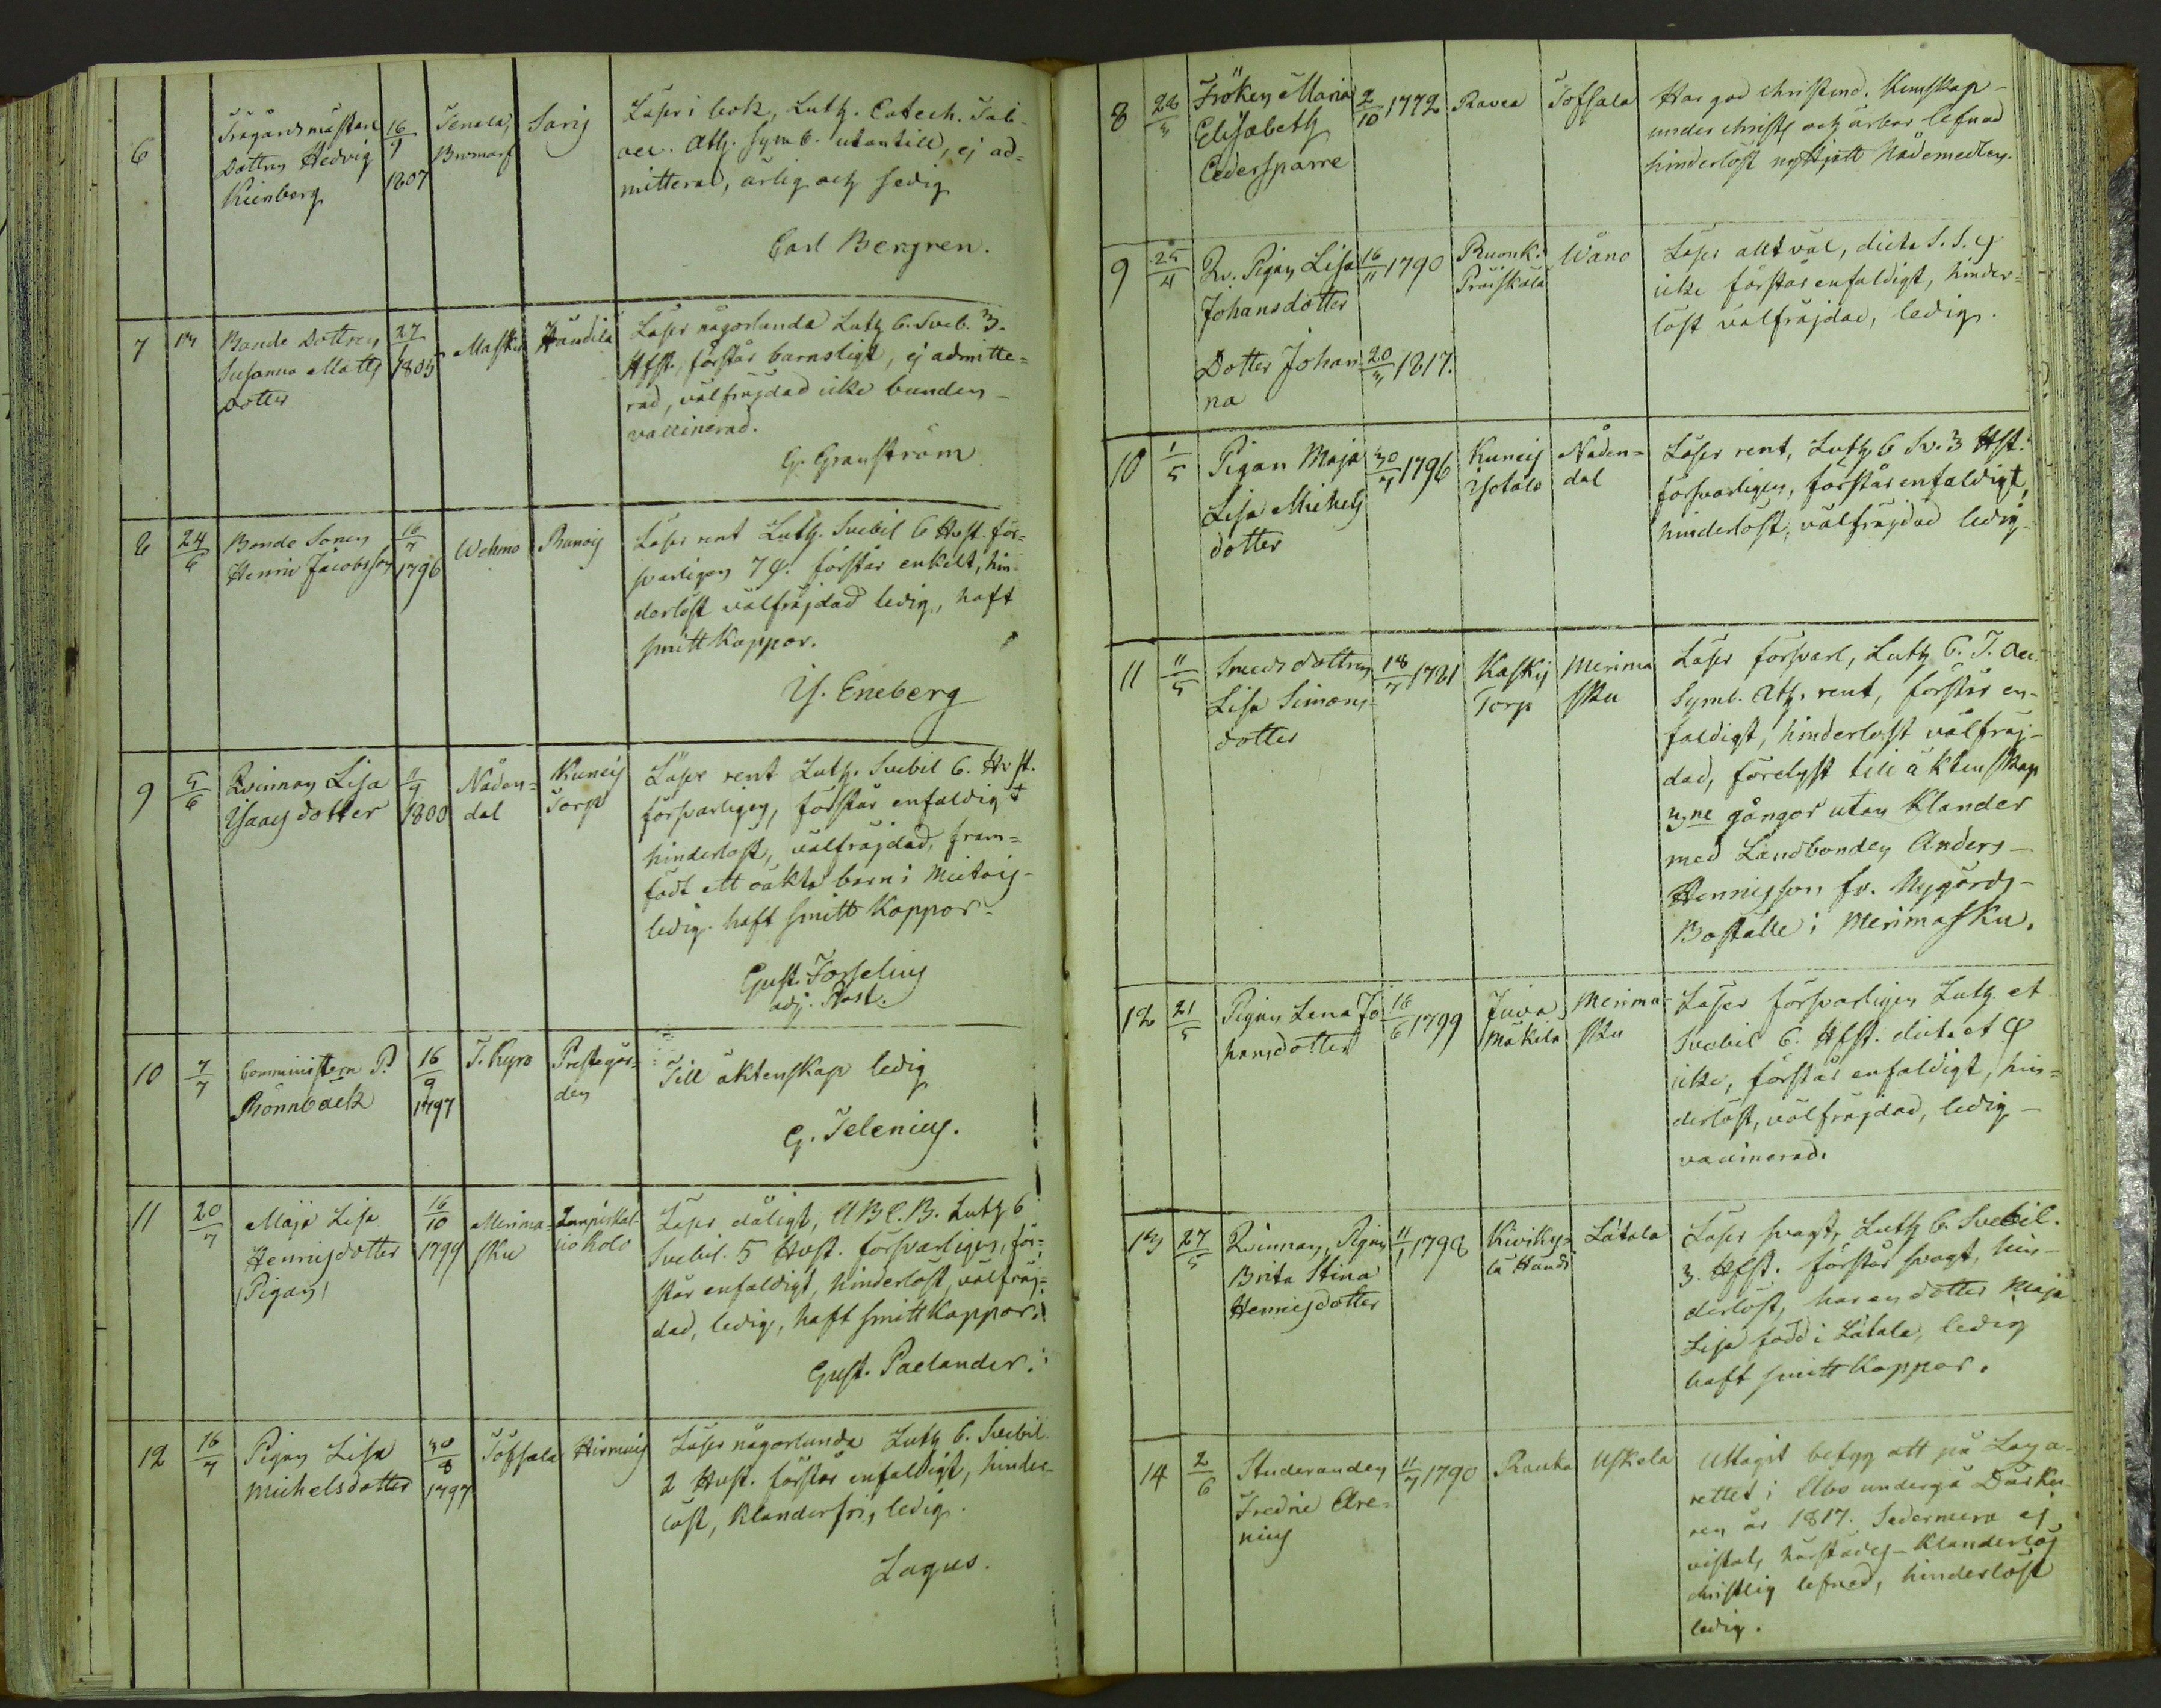 6
Trägårdsmästare
Dottren Hedvig
Kienberg
16/9
1807
Tenala,
Bromarf
Saris
Läser i bok, Luth. Catech. Tab.
oec. Ath. Symb. utantill, ej ad=
mitterad, ärlig och sedig
Carl Bergren.
7
Bonde Dottren
Susanna Matts
dotter
27/
1805
Masku
Händilä
Läser någorlunda Luth 6. Sveb. 3.
Hfst, förstår barnsligt, ej admitte=
rad, välfräjdad icke bunden
vaccinerad.
G. Granström
8
24/6
Bonde Sonen
Henric Jacobsson
16/7
1796
Wehmo
Läser rent Luth. Svebil 6 Hvst. för=
svarligen 7 q. förstår enkelt, hin
derlöst välfräjdad ledig, haft
smittkoppor.
Is. Eneberg
9
5/6
Qvinnan Lisa
Isaacs dotter
11/9
1800
Nåden=
dal
Kunois
Torp
Läser rent Luth. Svebil 6. Hvst.
försvarligen, förstår enfaldigt
hinderlöst, välfräjdad, fram=
födt ett oäkta barn i Mietois
ledig. haft smitt Koppor.
Gust. Forselius
adj. Past.
10
7/7
Comministern P.
Rönnbäck
16/9
1797
T. Kyro
Prestegår=
den
Till äktenskap ledig
G. Telenius.
11
20/7
Maja Lisa
Henricsdotter
/Pigan/
16/10
1799
Merima=
sku
Läser dåligt, ABC.B. Luth 6
Svebil. 5 Hvst. försvarligen, för=
står enfaldigt, hinderlöst, välfräj=
dad, ledig, haft smittkoppor.
Gust. Paelander.
12
16/7
Pigan Lisa
Michelsdotter
30/8
1797
Töfsala
Hirvois
Läser någorlunda Luth 6. Svebil
2 Hvst. förstår enfaldigt, hinder=
löst, klanderfri, ledig.
Lagus.
8
28/3
Fröken Maria
Elisabeth
Cedersparre
2/10 1772
Ravea
Tofsala
Har god christend. Kunskap
under christl. och ärbar lefnad
hinderlöst nyttjatt Nådemedlen.
9
25/4
Qv. Pigan Lisa
Johansdotter
16/11 1790
Ruonk.
Präiskälä
Wåno
Läser allt väl, dicta S. S. q
icke förstår enfaldigt, hinder=
löst välfräjdad, ledig.
Dotter Johan
na
20/3 1817.
10
1/5
Pigan Maja
Lisa Michels
dotter
30/7 1796
Kunois
Isotalo
Nåden=
dal
Läser rent, Luth 6 Sv. 3 Hst.
försvarligen, förstår enfaldigt
hinderlöst, välfräjdad ledig
11
11/5
Smeds dottren
Lisa Simons
dotter
18/7 1781
Kaskis
Torp
Merima
sku
Läser försvarl, Luth 6. T. oec.
Symb. Ath. rent, förstår en=
faldigt, hinderlöst välfräj=
dad, förelyst till äktenskap
3ne gångor utan klander
med Landbonden Anders
Henricsson fr. Nygårds
Boställe i Merimasku.
12
21/5
Pigan Lena Jo
hansdotter
16/6 1799
Juva
Mäkilä
Merima=
sku
Läser försvarligen Luth. et
Svebil 6. Hfst. dicta et q
icke, förstår enfaldigt, hin=
derlöst, välfräjdad, ledig
vaccinerad.
13
27/5
Qvinnan, Pigan
Brita Stina
Henricsdotter
11/1 1798
Kiviky=
lä Handi
Låtala
Läser svagt, Luth 6. Svebil.
3. Hfst. förstår svagt, hin=
derlöst, har en dotter Maja
Lisa född i Låtala, ledig
haft smittkoppor.
14
2/6
Studeranden
Fredric Are=
nius
11/7 1790
Rauka
Uskela
Uttagit betyg att på Laza=
rettet i Åbo undergå Dårku
ren år 1817. Sedermera ej
vistats härstädes. Klanderlös
christlig lefnad, hinderlöst
ledig.